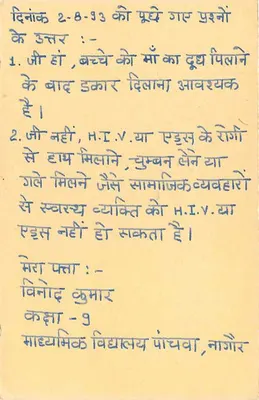 दिनांक 2-8-93 को पूछे गए प्रश्नों
के उत्तर :-
1. जी हां, बच्चे को माँ का दूध पिलाने
के बाद डकार दिलाना आवश्यक
है।
2. जी नहीं, H.I.V. या एड्स के रोगी
से हाथ मिलाने, चुम्बन लेने या
गले मिलने जैसे सामाजिक व्यवहारों
से स्वस्थ व्यक्ति को H.I.V. या
एड्स नहीं हो सकता है।
मेरा पत्ता :-
विनोद कुमार
कक्षा - 9
माध्यमिक विद्यालय पांचवा, नागौर